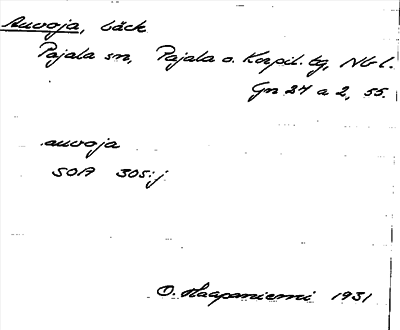 Auvoja, bäck
Pajala sn, Pajala o. Korpil. tg, Nb l.
Gn 27 a 2, 55.
auvoja
SOA 305:j
O. Haapaniemi 1931